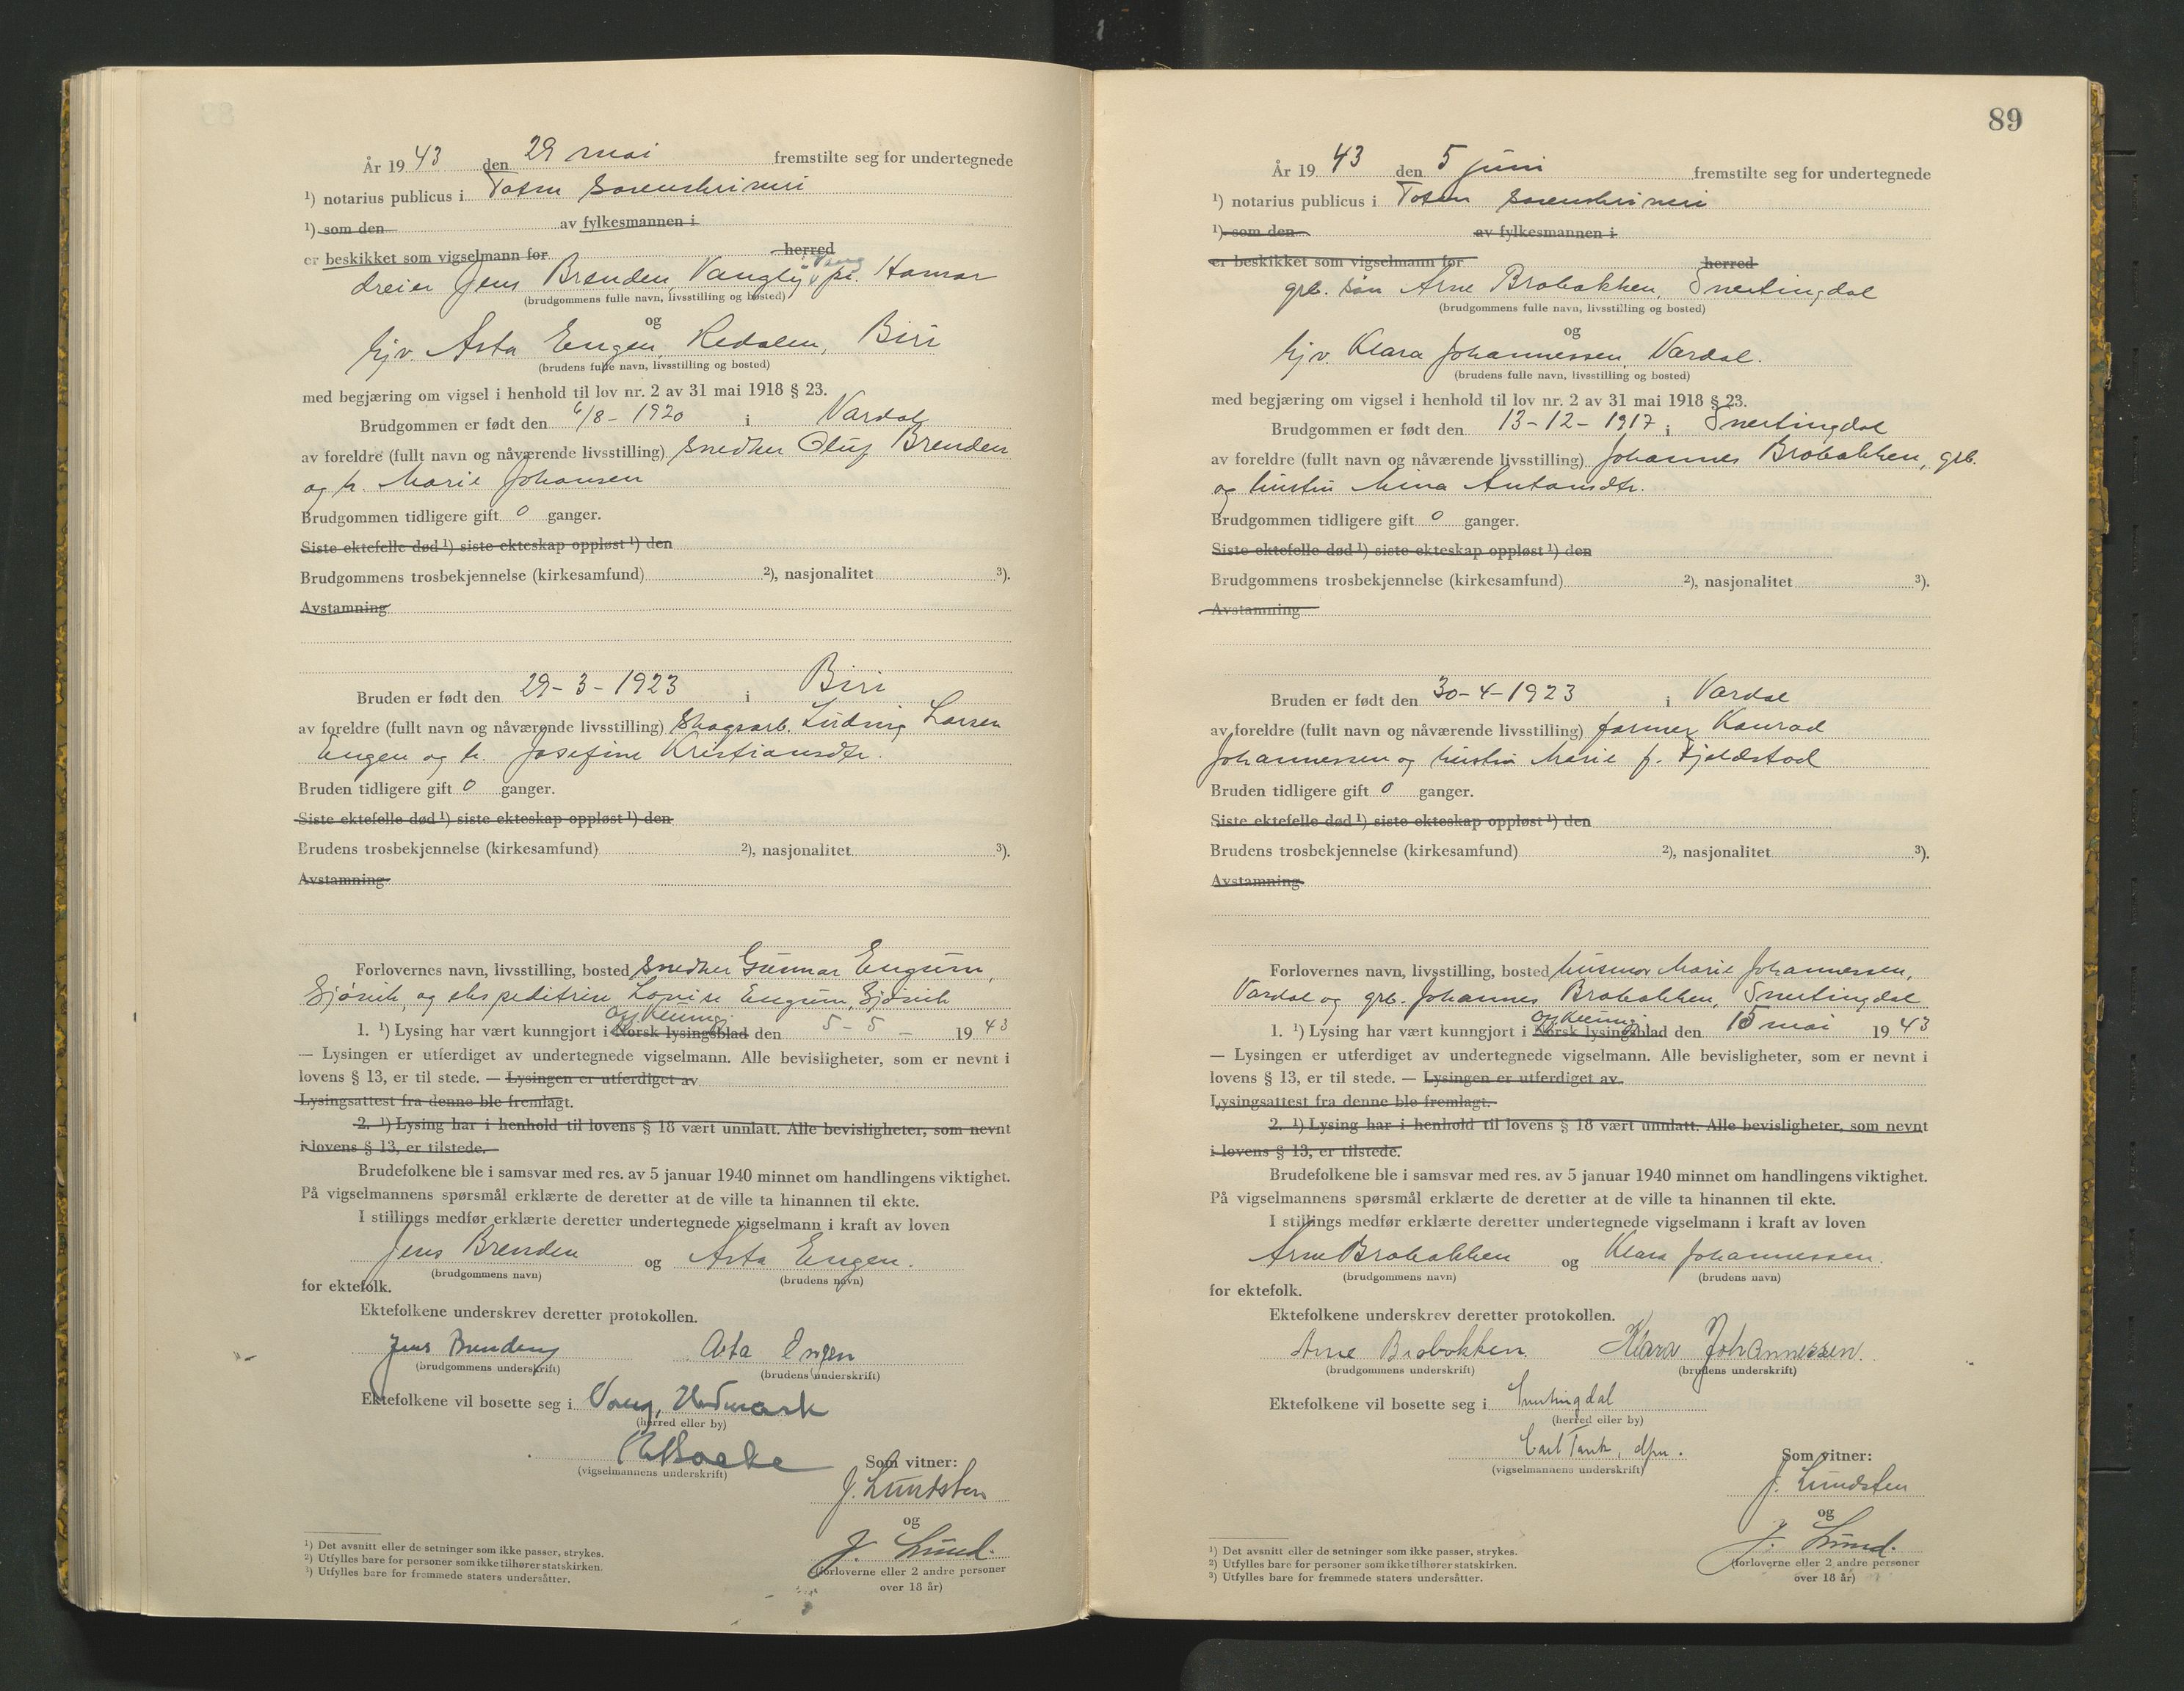 År 1943 den 29 mai fremstilte seg for undertegnede
¹) notarius publicus i Toten Sorenskriveri
¹) som den av fylkesmannen i
er beskikket som vigselmann for herred
dreier Jens Brenden, Vangly i Vang pr. Hamar
(brudgommens fulle navn, livsstilling og bosted)
og
hjv. Asta Engen, Redalen, Biri
(brudens fulle navn, livsstilling og bosted)
med begjæring om vigsel i henhold til lov nr. 2 av 31 mai 1918 § 23.
Brudgommen er født den 6/8-1920 i Vardal
av foreldre (fullt navn og nåværende livsstilling) snedker Oluf Brenden
og h. Marie Johansen
Brudgommen tidligere gift 0 ganger.
Siste ektefelle død ¹) siste ekteskap oppløst ¹) den
Brudgommens trosbekjennelse (kirkesamfund) ²), nasjonalitet ³).
Avstamning
Bruden er født den 29-3-1923 i Biri
av foreldre (fullt navn og nåværende livsstilling) Skogsarb. Ludvig Larsen
Engen og h. Josefine Kristiansdtr.
Bruden tidligere gift 0 ganger.
Siste ektefelle død ¹) siste ekteskap oppløst ¹) den
Brudens trosbekjennelse (kirkesamfund) ²), nasjonalitet ³).
Avstamning
Forlovernes navn, livsstilling, bosted snedker Gunnar Engum,
Gjøvik, og ekspeditrise Louise Engum, Gjøvik
off. kunngj.
1. ¹) Lysing har vært kunngjort i Norsk lysingsblad den 5-5- 1943
— Lysingen er utferdiget av undertegnede vigselmann. Alle bevisligheter, som er nevnt i
lovens § 13, er til stede. — Lysingen er utferdiget av
Lysingsattest fra denne ble fremlagt.
2. ¹) Lysing har i henhold til lovens § 18 vært unnlatt. Alle bevisligheter, som nevnt
i lovens § 13, er tilstede.
Brudefolkene ble i samsvar med res. av 5 januar 1940 minnet om handlingens viktighet.
På vigselmannens spørsmål erklærte de deretter at de ville ta hinannen til ekte.
I stillings medfør erklærte deretter undertegnede vigselmann i kraft av loven
Jens Brenden og Asta Engen.
(brudgommens navn) (brudens navn)
for ektefolk.
Ektefolkene underskrev deretter protokollen.
Jens Brenden Asta Engen
(brudgommens underskrift) (brudens underskrift)
Ektefolkene vil bosette seg i Vang, Hedmark
(herred eller by)
(vigselmannens underskrift)
Som vitner:
J. Lundsten
og
J. Lund.
(forloverne eller 2 andre personer
over 18 år)
¹) Det avsnitt eller de setninger som ikke passer, strykes.
²) Utfylles bare for personer som ikke tilhører statskirken.
³) Utfylles bare for fremmede staters undersåtter.
89
År 1943 den 5 juni fremstilte seg for undertegnede
¹) notarius publicus i Toten Sorenskriveri
¹) som den av fylkesmannen i
er beskikket som vigselmann for herred
grb. søn Arne Brobakken, Snertingdal
(brudgommens fulle navn, livsstilling og bosted)
og
hjv. Klara Johannessen, Vardal.
(brudens fulle navn, livsstilling og bosted)
med begjæring om vigsel i henhold til lov nr. 2 av 31 mai 1918 § 23.
Brudgommen er født den 13-12-1917 i Snertingdal
av foreldre (fullt navn og nåværende livsstilling) Johannes Brobakken, grb.
og hustru Mina Antonsdtr.
Brudgommen tidligere gift 0 ganger.
Siste ektefelle død ¹) siste ekteskap oppløst ¹) den
Brudgommens trosbekjennelse (kirkesamfund) ²), nasjonalitet ³).
Avstamning
Bruden er født den 30-4-1923 i Vardal
av foreldre (fullt navn og nåværende livsstilling) farmer Konrad
Johannessen og hustru Marie f. Fjeldstad
Bruden tidligere gift 0 ganger.
Siste ektefelle død ¹) siste ekteskap oppløst ¹) den
Brudens trosbekjennelse (kirkesamfund) ²), nasjonalitet ³).
Avstamning
Forlovernes navn, livsstilling, bosted husmor Marie Johannessen,
Vardal og grb. Johannes Brobakken, Snertingdal
off. kunngj.
1. ¹) Lysing har vært kunngjort i Norsk lysingsblad den 15 mai 1943
— Lysingen er utferdiget av undertegnede vigselmann. Alle bevisligheter, som er nevnt i
lovens § 13, er til stede. — Lysingen er utferdiget av
Lysingsattest fra denne ble fremlagt.
2. ¹) Lysing har i henhold til lovens § 18 vært unnlatt. Alle bevisligheter, som nevnt
i lovens § 13, er tilstede.
Brudefolkene ble i samsvar med res. av 5 januar 1940 minnet om handlingens viktighet.
På vigselmannens spørsmål erklærte de deretter at de ville ta hinannen til ekte.
I stillings medfør erklærte deretter undertegnede vigselmann i kraft av loven
Arne Brobakken og Klara Johannessen.
(brudgommens navn) (brudens navn)
for ektefolk.
Ektefolkene underskrev deretter protokollen.
Arne Brobakken Klara Johannessen.
(brudgommens underskrift) (brudens underskrift)
Ektefolkene vil bosette seg i Snertingdal
(herred eller by)
Carl Tank, dfm.
(vigselmannens underskrift)
Som vitner:
J. Lundsten
og
J. Lund.
(forloverne eller 2 andre personer
over 18 år)
¹) Det avsnitt eller de setninger som ikke passer, strykes.
²) Utfylles bare for personer som ikke tilhører statskirken.
³) Utfylles bare for fremmede staters undersåtter.